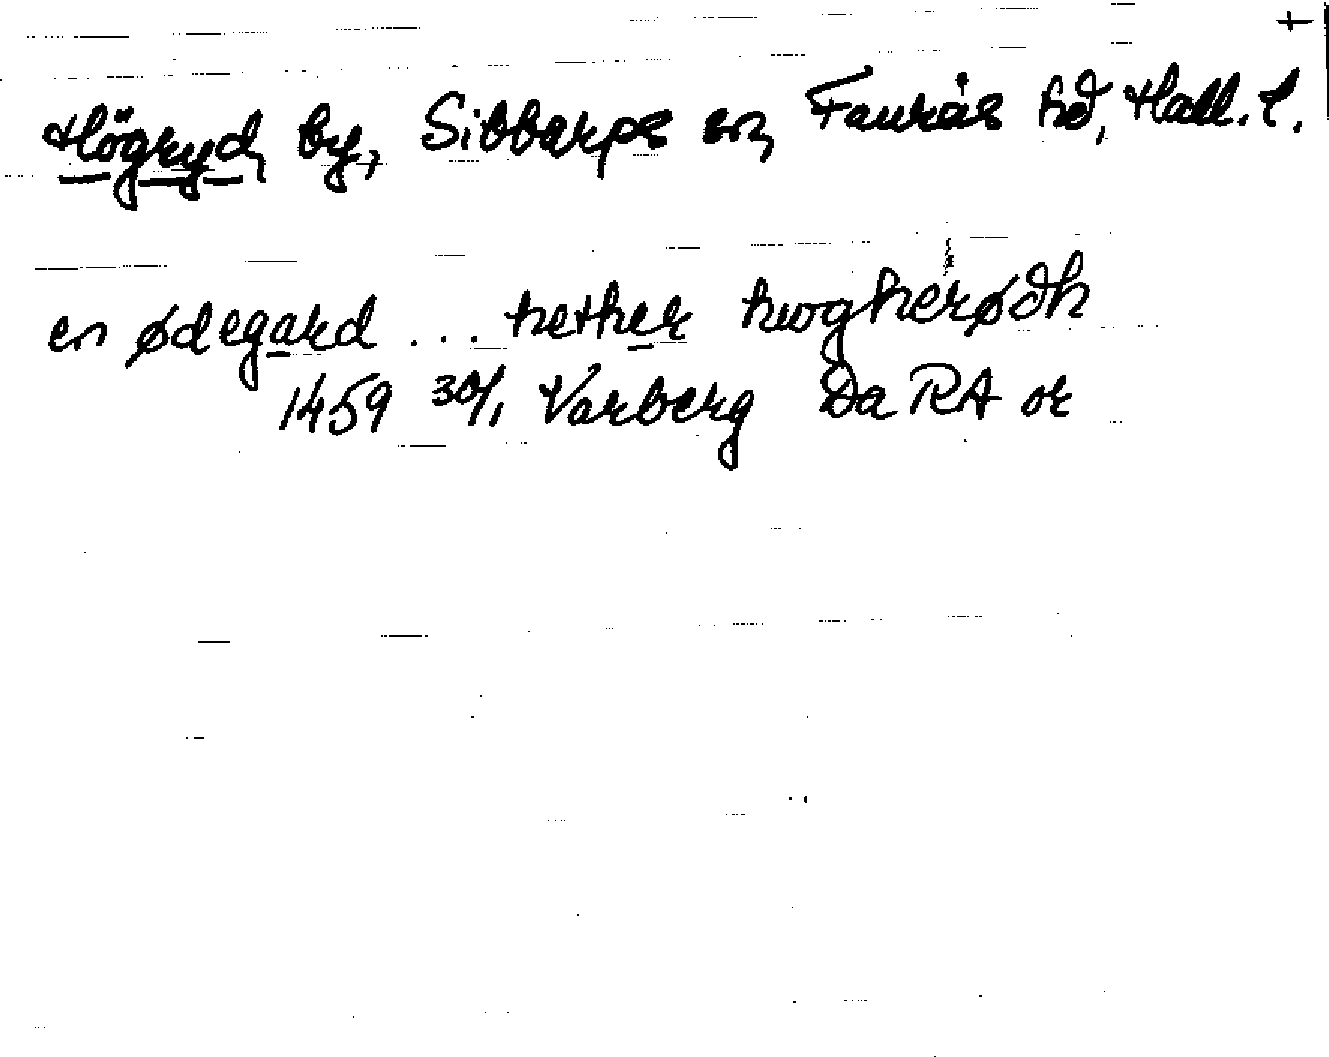 +
Högryd, by, Sibbarps sn, Faurås hd, Hall. l.
en ødegard ... hether hwgherødh
1459 30/1 Varberg Da RA or